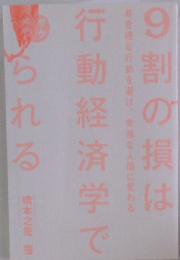 9割の損は
行動経済学で
られる
非合理な行動を避け、幸福な人間に変わる
橋本之克 著